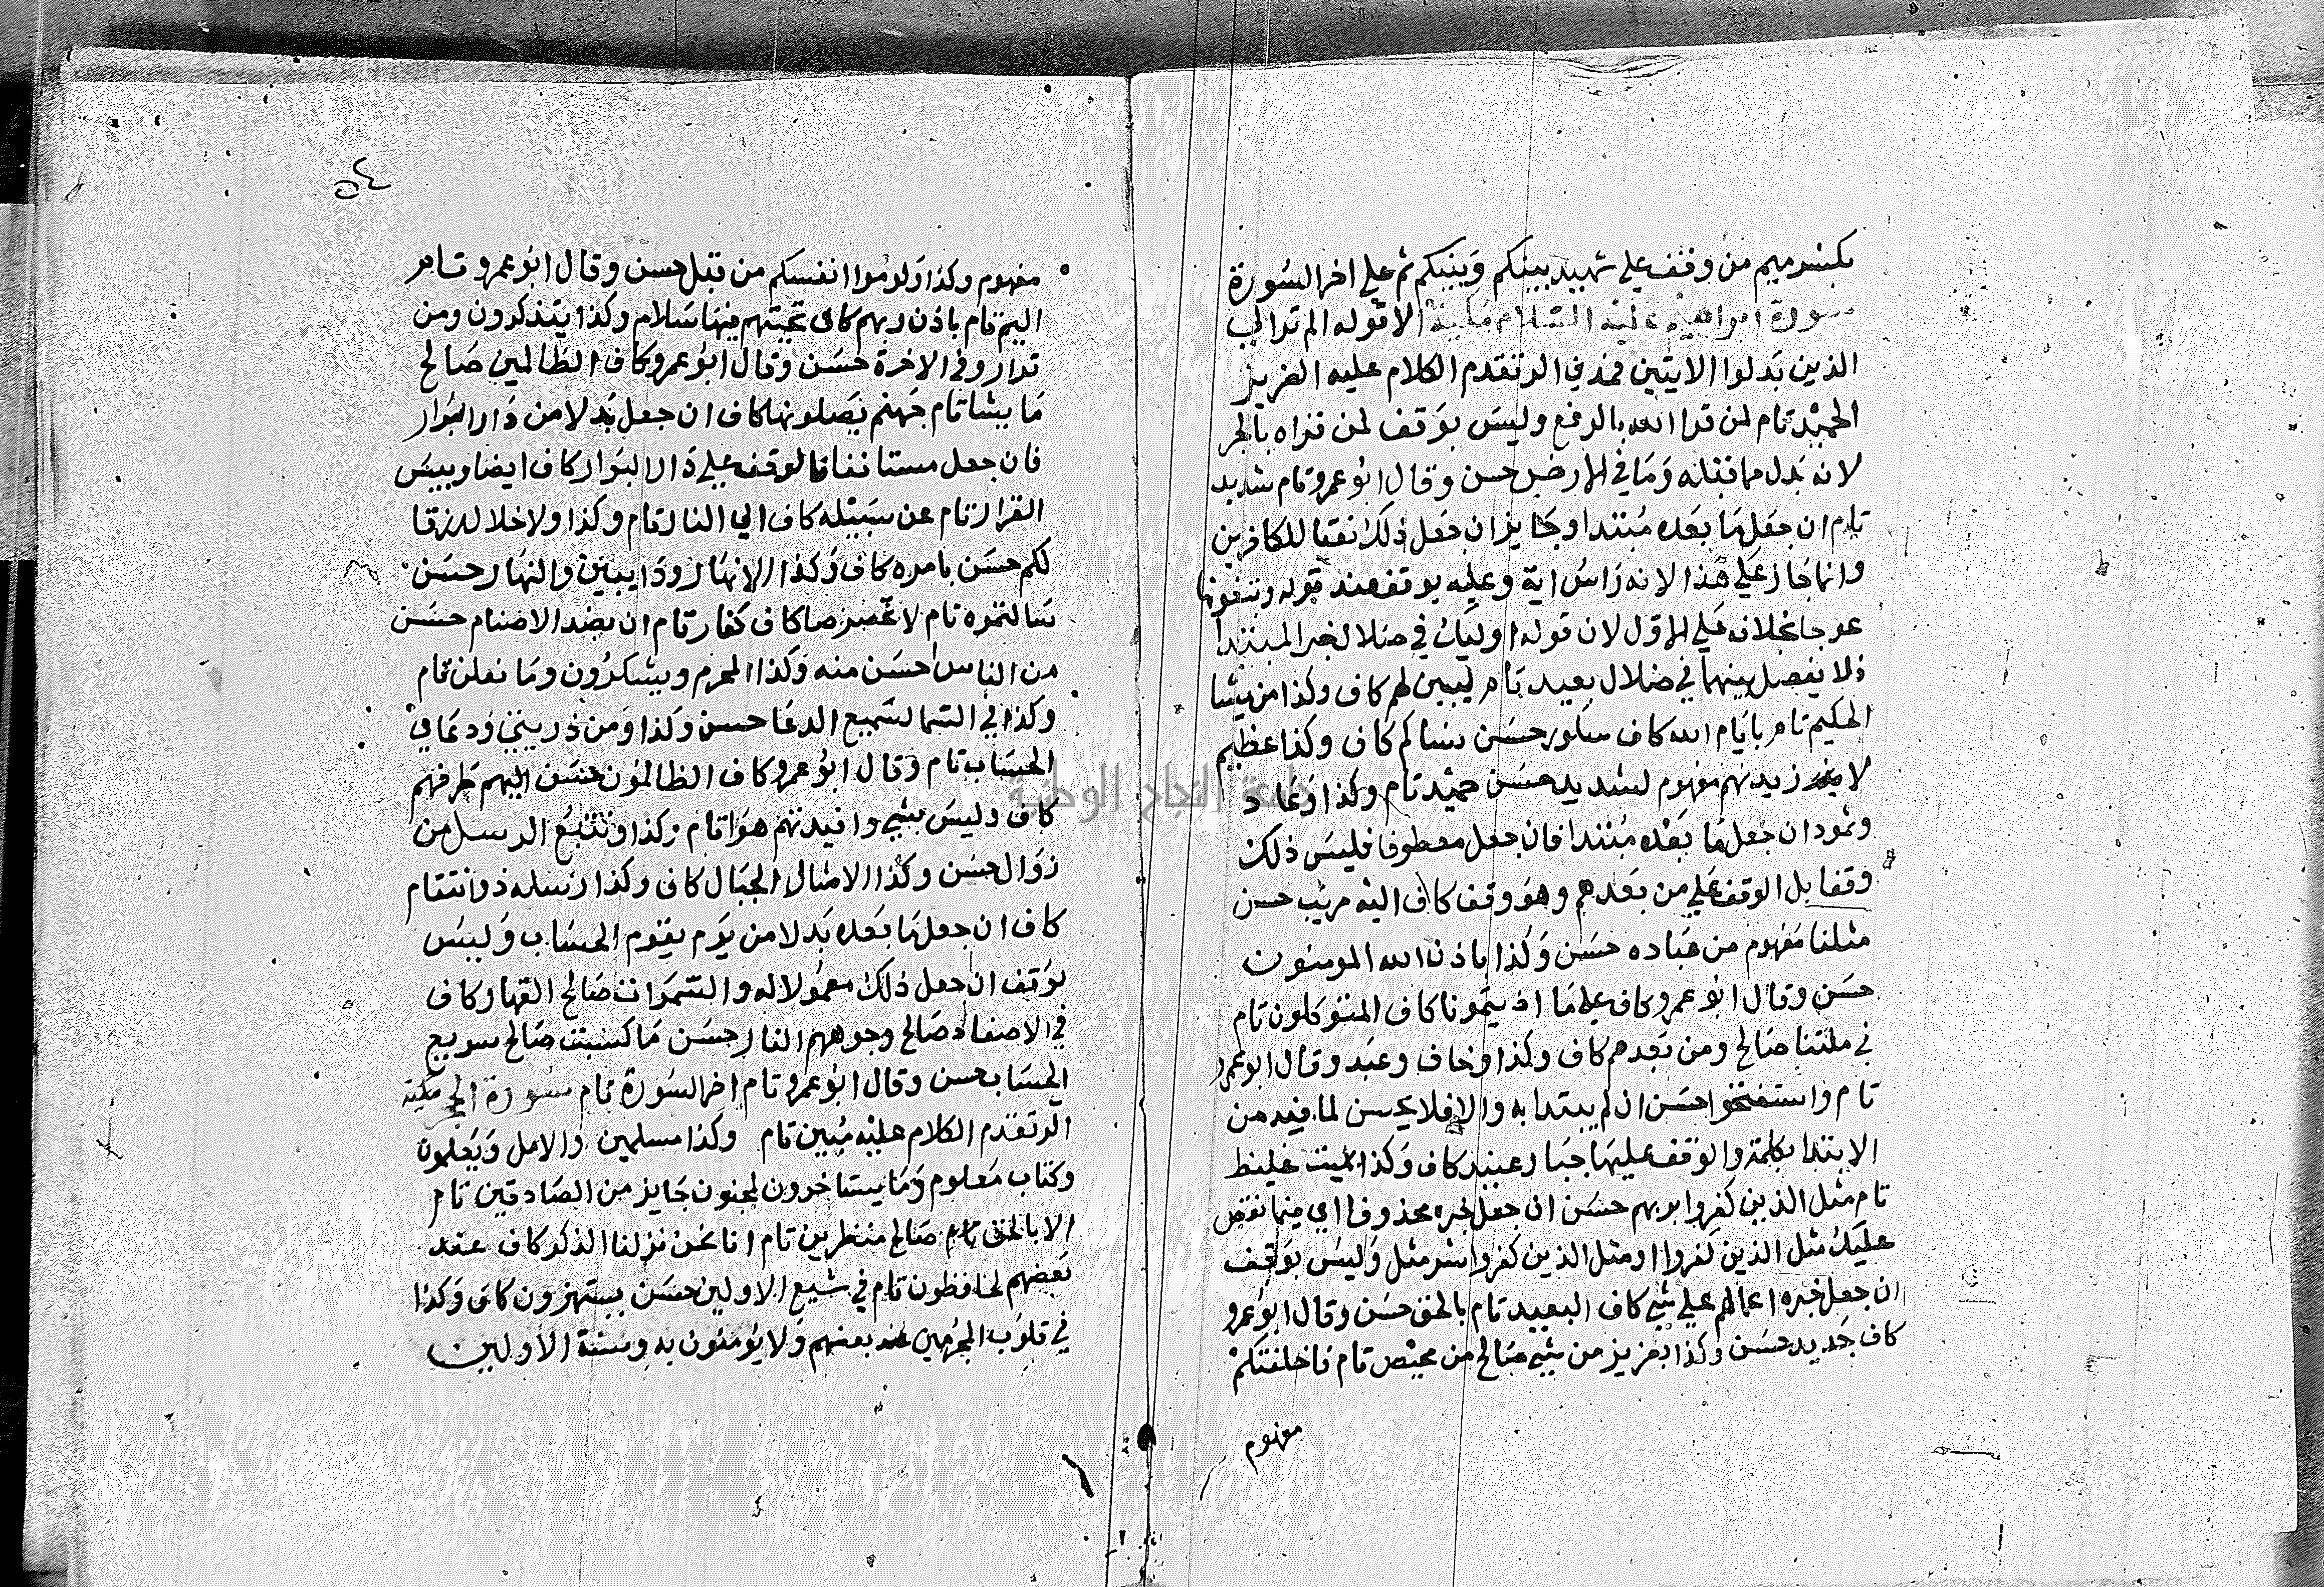 بكسر ميم من وقف علي شهيد بيني وبينكم ثم علي اخر السورة
سورة ابراهيم عليه السلام مكية الا قوله الم تر الي
الذين بدلوا الايتين فمدني الر تقدم الكلام عليه العزيز
الحميد تام لمن قرا الله بالرفع وليس بوقف لمن قراه بالجر
لانه بدل مما قبله وما في الارض حسن وقال ابو عمرو تام شديد
تام ان جعل ما بعده مبتدا وجايز ان جعل ذلك نعتا للكافرين
وانما جاز علي هذا لانه راس اية وعليه يوقف عند قوله وتبغونها
عوجا بخلافه علي الاول لان قوله اوليك في ضلال خبر المبتدا
فلا يفصل بينهما في ضلال بعيد تام ليبين لهم كاف وكذا من يشا
الحكيم تام بايام الله كاف شكور حسن نساكم كاف وكذا عظيم
لازيدنكم مفهوم لشديد حسن حميد تام وكذا وعاد
وثمود ان جعل ما بعده مبتدا فان جعل معطوفا فليس ذلك
وقفا بل الوقف علي من بعدهم وهو وقف كاف اليه مريب حسن
مثلنا مفهوم من عباده حسن وكذا باذن الله المومنون
حسن وقال ابو عمرو كاف علي ما اذيتمونا كاف المتوكلون تام
في ملتنا صالح ومن بعدهم كاف وكذا وخاف وعيد وقال ابو عمرو
تام واستفتحوا حسن ان لم يبتدا به والا فلا يحسن لما فيه من
الابتدا بكلمة والوقف عليها جبار عنيد كاف وكذا بميت غليظ
تام مثل الذين كفروا بربهم حسن ان جعل خبره محذوفا اي فيما نقص
عليك مثل الذين كفروا او مثل الذين كفروا شر مثل وليس بوقف
ان جعل خبره اعمالهم علي شي كاف البعيد تام بالحق حسن وقال ابو عمرو
كاف جديد حسن وكذا بعزيز من شي صالح من محيص تام فاخلفتكم
مفهوم
٥٤
مفهوم وكذا ولوموا انفسكم من قبل حسن وقال ابو عمرو تام
اليم تام باذن ربهم كاف تحيتهم فيها سلام وكذا يتذكرون ومن
قرار وفي الاخرة حسن وقال ابو عمرو كاف الظالمين صالح
ما يشا تام جهنم يصلونها كاف ان جعل بدلا من دار البوار
فان جعل مستانفا فالوقف علي دار البوار كاف ايضا وبيس
القرار تام عن سبيله كاف الي النار تام وكذا ولا خلال رزقا
لكم حسن بامره كاف وكذا الانهار ودايبين والنهار حسن
سالتموه تام لا تحصوها كاف كفار تام ان نعبد الاصنام حسن
من الناس حسن منه وكذا المحرم ويشكرون وما نعلن تام
وكذا في السما لسميع الدعا حسن وكذا ومن ذريتي ودعاي
الحساب تام وقال ابو عمرو كاف الظالمون حسن اليهم طرفهم
كاف وليس بشي وافيدتهم هوا تام وكذا ونتبع الرسل من
زوال حسن وكذا الامثال الجبال كاف وكذا رسله ذو انتقام
كاف ان جعل ما بعده بدلا من يوم يقوم الحساب وليس
بوقف ان جعل ذلك معمولا له والسموات صالح القهار كاف
في الاصفاد صالح وجوههم النار حسن ما كسبت صالح سريع
الحساب حسن وقال ابو عمرو تام اخر السورة تام سورة الحجر مكية
الر تقدم الكلام عليه مبين تام وكذا مسلمين والامل ويعلمون
وكتاب معلوم وما يستاخرون لمجنون جايز من الصادقين تام
الا بالحق تام صالح منظرين تام انا نحن نزلنا الذكر كاف عند
بعضهم لحافظون تام في شيع الاولين حسن يستهزون كاف وكذا
في قلوب المجرمين عند بعضهم ولا يومنون به وسنة الاولين